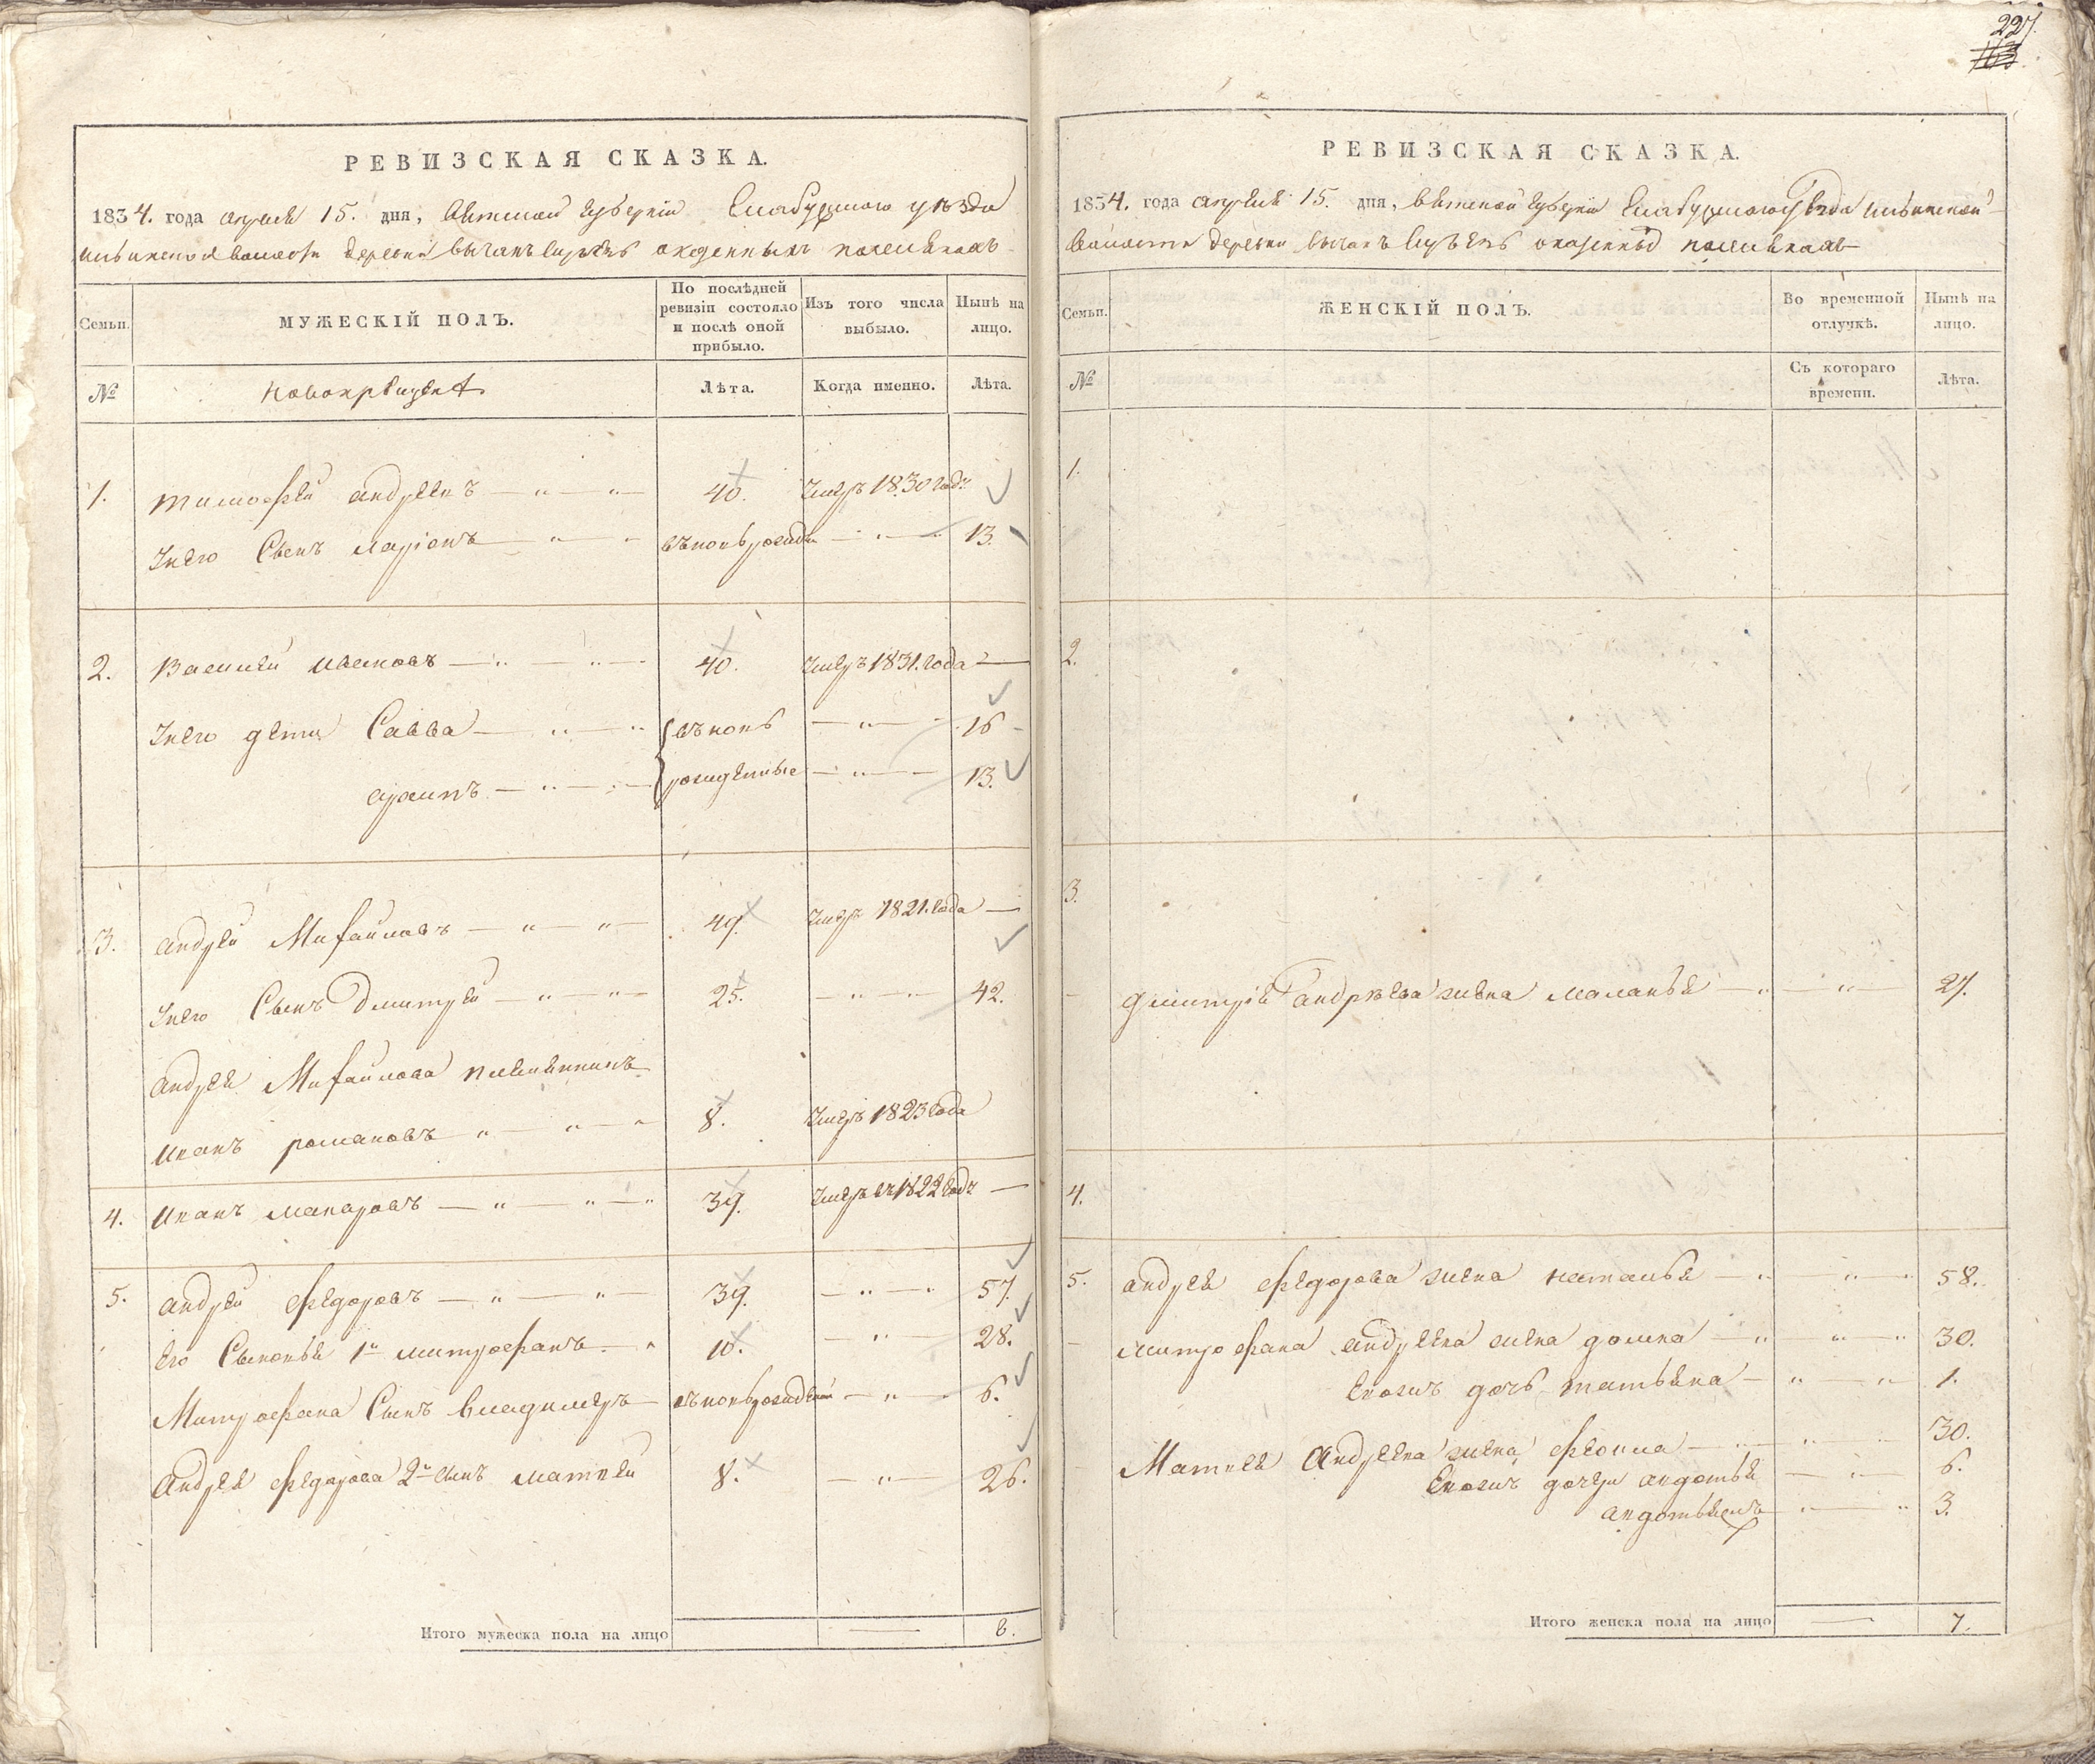 РЕВИЗСКАЯ СКАЗКА.
1834. года апреля 15. дня, Вятской губернїи Елабужского уѣзда
волости деревни
МУЖЕСКІЙ ПОЛЪ.
Семьи.
По послѣдней ревизіи состояло и послѣ оной прибыло.
Изъ того числа выбыло.
Нынѣ на лицо.
№
новокрещена
Лѣта.
Когда именно.
Лѣта.
1. тимофей андреевъ 40. умеръ 1830 года
Уево сынъ ларіонъ вновь рожден 13.
2. Василей ивановъ 40. умеръ 1831. года
Уево дети Савва вновь 16
архипъ рожденные 13.
3. андрей Михайловъ 49. умеръ 1821. года
Уево Сынъ Дмитрей 25. 42.
андрея Михайлова племянникъ
иванъ романовъ 8. умеръ 1823 года
4. иванъ макаровъ 39. умеръ въ 1822 годе
5. андрей федоровъ 39. 57.
Его Сыновья 1й митрофанъ 10. 28.
Митрофана Сынъ Владимеръ вновь рожденой 6.
андрея федорова 2й сынъ матвей 8. 26.
Итого мужеска пола на лицо 8.
227.
163
РЕВИЗСКАЯ СКАЗКА.
1834. года апреля 15. дня, вятской губернїи Елабужского уѣзда
волости деревни
Семьи.
ЖЕНСКІЙ ПОЛЪ.
Во временной отлучкѣ.
Нынѣ на лицо.
№
Съ котораго времени.
Лѣта.
1.
2.
3.
Дмитрія андрѣева жена маланья 27.
4.
5. андрея федорова жена наталья 58.
митрофана андреева жена домна 30.
Евожъ дочь татьяна 1.
Матвея андреева жена фекла 30.
Евожъ дочери авдотья 6.
3.
Итого женска пола на лицо 7.